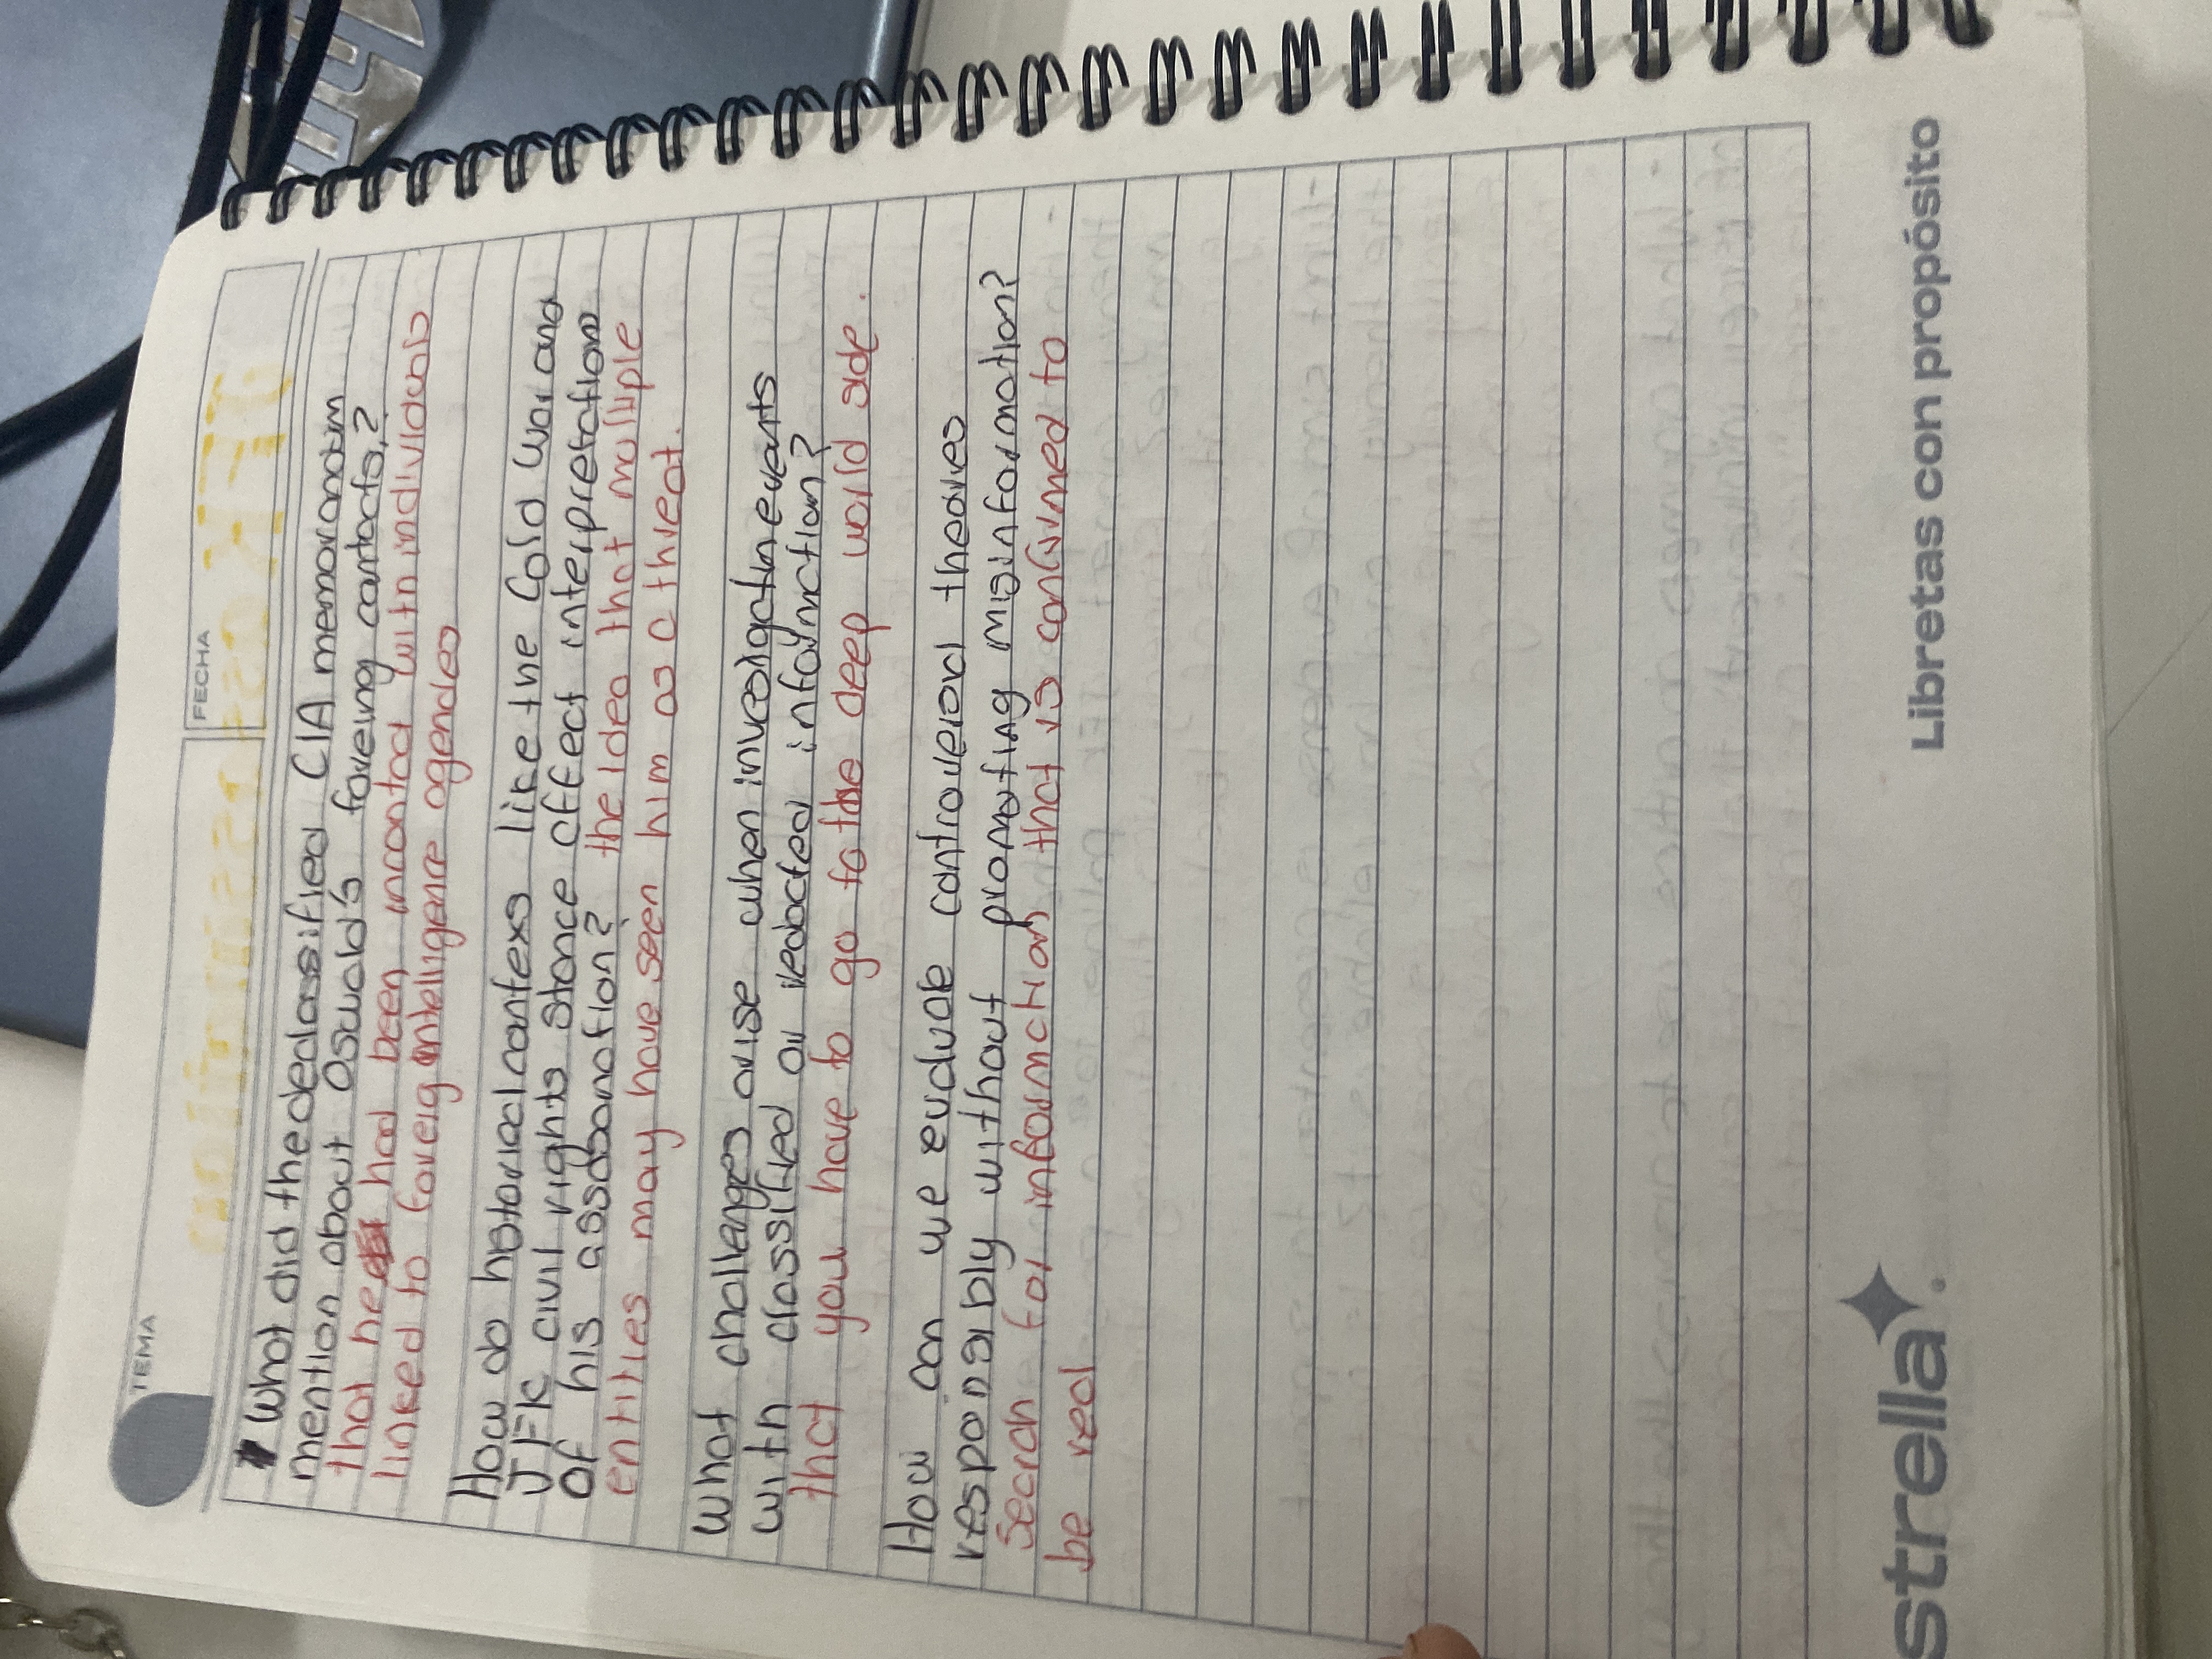 TEMA
FECHA
What did the declassified CIA memoranoum
mention about Osuald's foreing contacts,?
that he had been incontact with individuals
linked to foreig intelligence agendes
How do historical contexs like the Cold War and
JFK civil rights stance effect interpretation
of his assasanation? the idea that multiple
entities may have seen him as a threat.
What challenges arise when investigatin events
with classified or redacted information?
that you have to go to the deep world side.
How can we evaluate controversial theories
responsibly without promoting misinformation?
Search for information that is confirmed to
be real
strella
Libretas con propósito